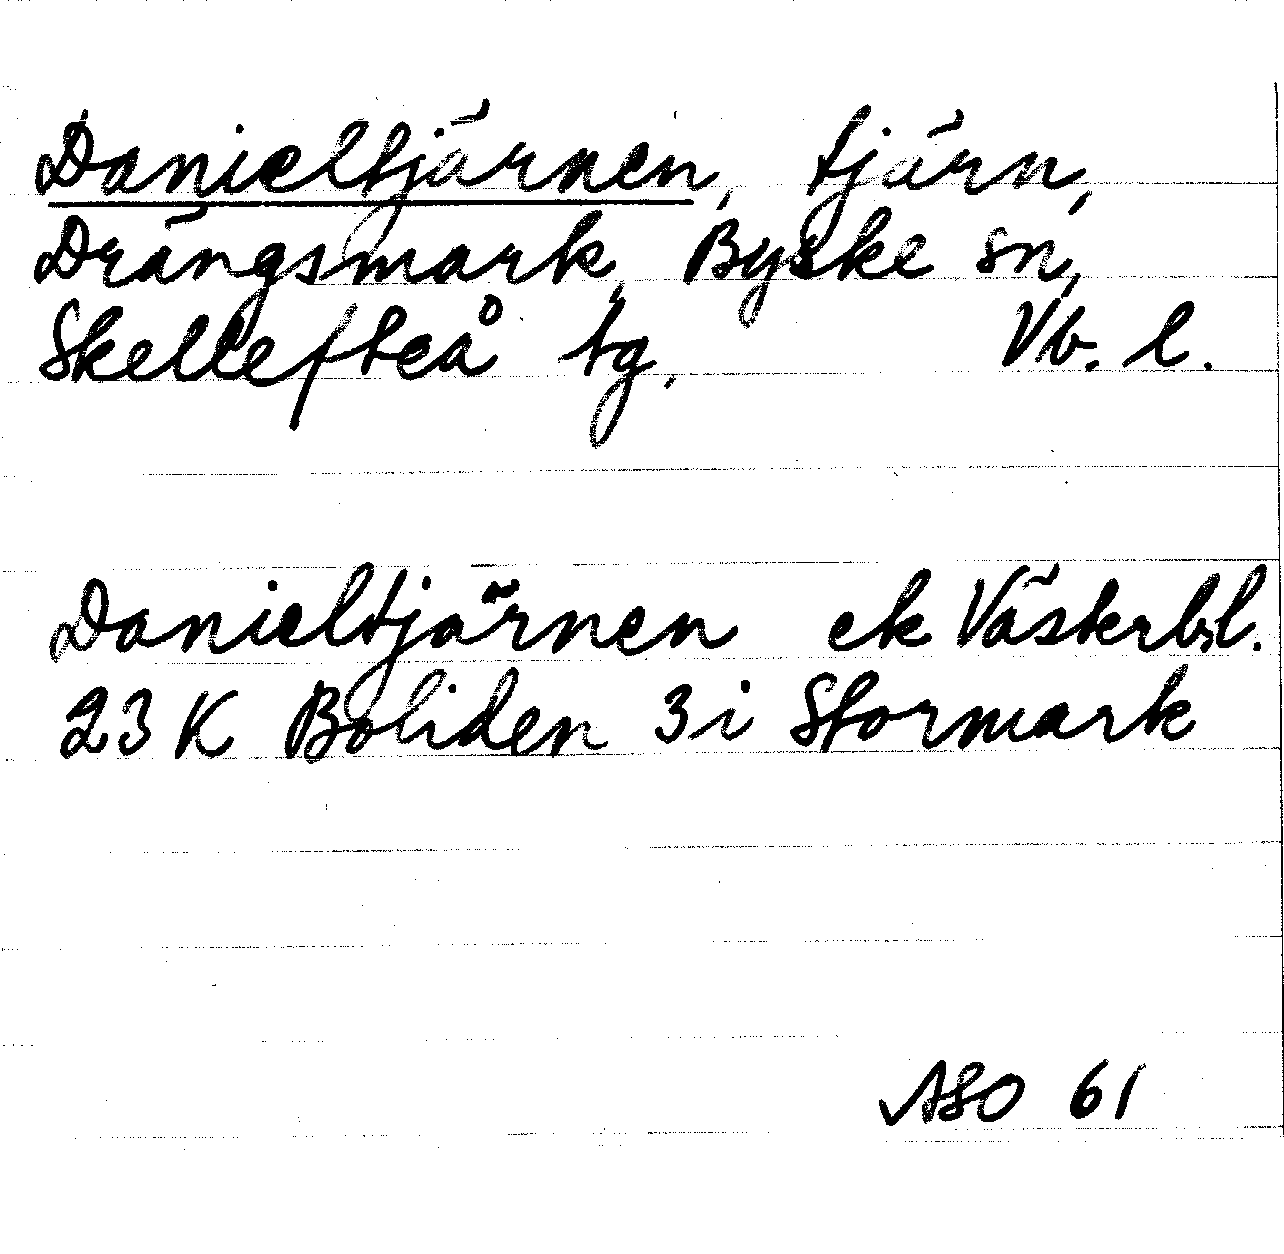 Danieltjärnen, tjärn,
Drängsmark, Byske sn,
Skellefteå tg, Vb. l.
Danieltjärnen ek Västerb.l.
23 K Boliden 3i Stormark
ASO 61